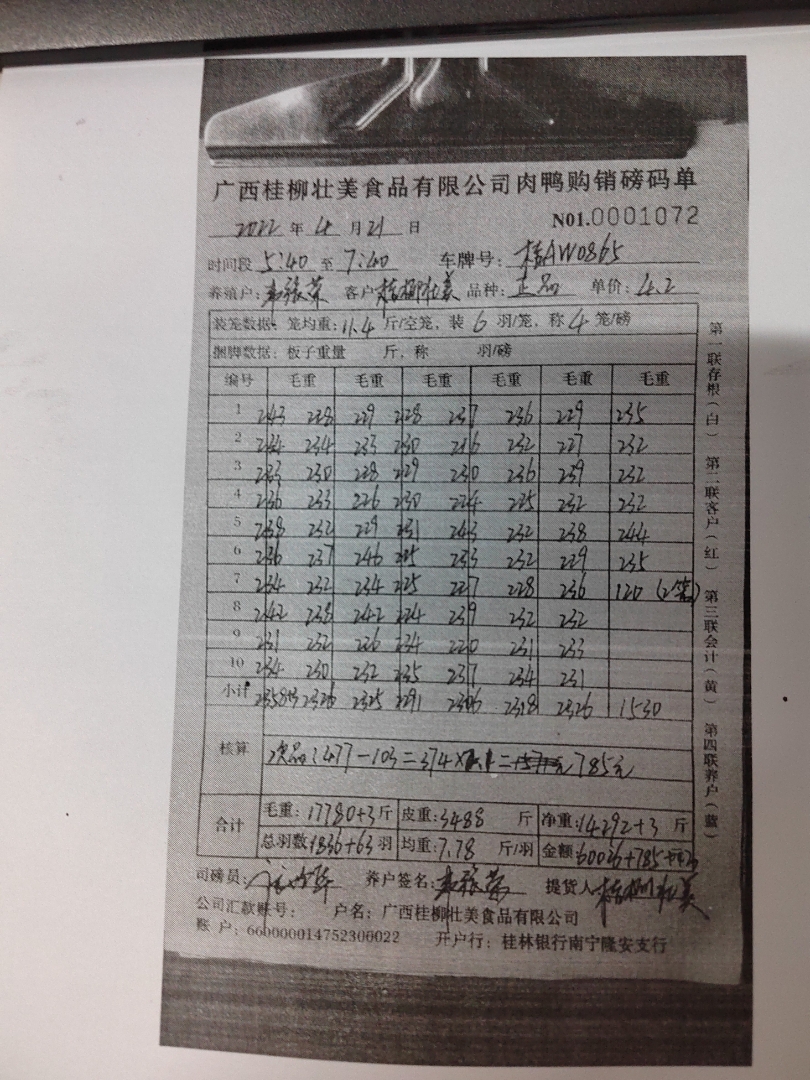 广西桂柳壮美食品有限公司肉鸭购销磅码单
2022 年 4 月 21 日 N01.0001072
时间段 5:40 至 7:40 车牌号: 桂AW0865
养殖户: 客户 桂柳壮美 品种: 正品 单价: 4.2
装笼数据: 笼均重: 11.4 斤/空笼, 装 6 羽/笼, 称 4 笼/磅
捆脚数据: 板子重量 斤, 称 羽/磅
编号 毛重 毛重 毛重 毛重 毛重 毛重
1 243 228 229 228 237 236 229 235
2 234 234 233 230 232 227 232
3 233 230 228 229 230 236 239 232
4 236 233 226 230 224 225 232 232
5 238 232 229 231 243 232 238 244
6 236 237 246 225 233 232 229 235
7 234 232 234 225 227 228 236 120 (2笼)
8 242 238 242 224 239 232 232
9 231 232 226 234 220 231 233
10 234 230 232 235 237 234 231
小计 2358+3 2326 2325 2291 2306 2318 2326 1530
核算 次品: 477-103=374× = 785元
合计 毛重: 17780+3 斤 皮重: 3488 斤 净重: 14292+3 斤
总羽数 1836+63 羽 均重: 7.78 斤/羽 金额: 60026+785
司磅员: 养户签名: 提货人 桂柳壮美
公司汇款账号: 户名: 广西桂柳壮美食品有限公司
账 户: 660000014752300022 开户行: 桂林银行南宁隆安支行
第一联存根(白) 第二联客户(红) 第三联会计(黄) 第四联养户(蓝)